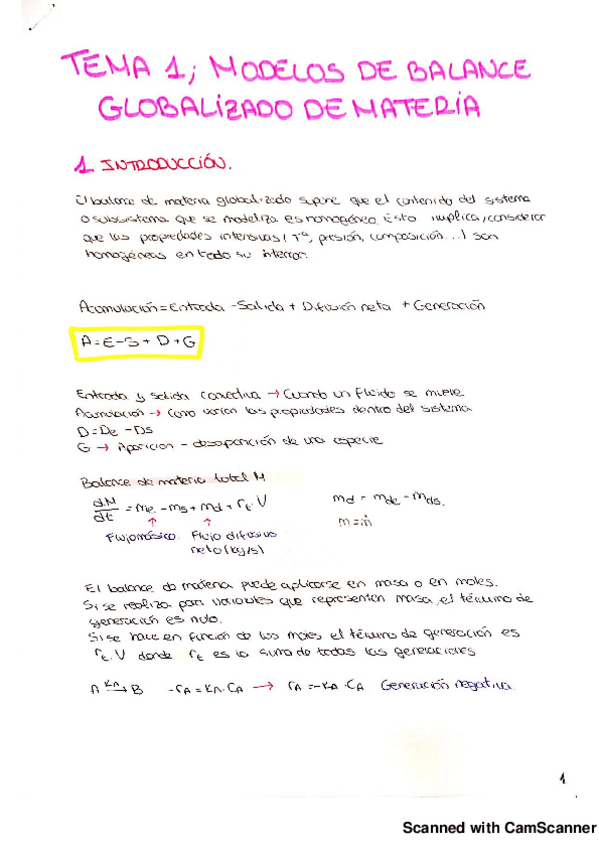 TEMA 1; MODELOS DE BALANCE
GLOBALIZADO DE MATERÍA
1. INTRODUCCIÓN.
El balance de materia globalizado supone que el contenido del sistema
o subsistema que se modeliza es homogéneo. Esto implica, considerar
que las propiedades intensivas (Tª, presión, composición...) son
homogéneas en todo su interior.
Acumulación = Entrada - Salida + Difusión neta + Generación
A = E - S + D + G
Entrada y salida convectiva → Cuando un fluido se mueve
Acumulación → Como varían las propiedades dentro del sistema
D = De - Ds
G → Aparición - desaparición de una especie
Balance de materia total M
dM/dt = me - ms + md + rt · V
md = mde - mds.
m = ṁ
↑ ↑
Flujo másico. Flujo difusivo
neto (kg/s)
El balance de materia puede aplicarse en masa o en moles.
Si se realiza para variables que representen masa, el término de
generación es nulo.
Si se hace en función de los moles el término de generación es
rt · V donde rt es la suma de todas las generaciones
A kA→ B -rA = KA · CA → rA = -KA · CA Generación negativa.
1
Scanned with CamScanner